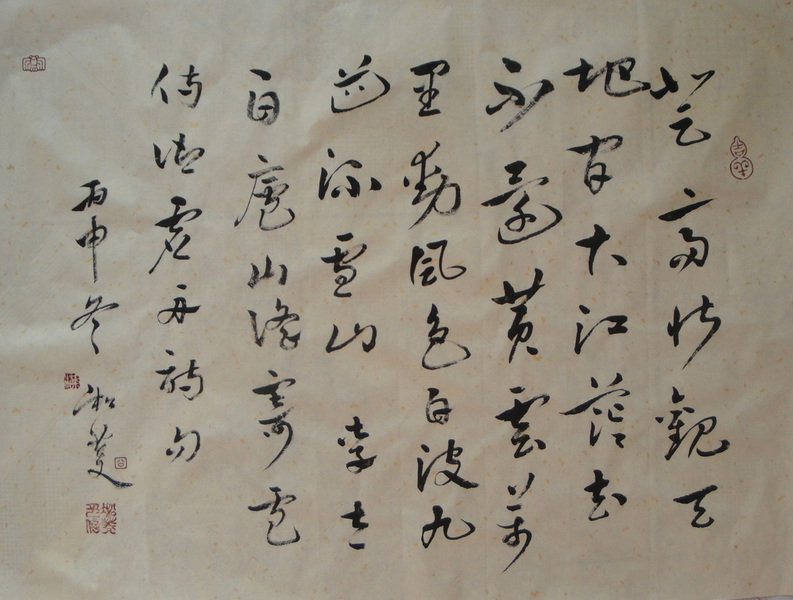 登高壯觀天
地間大江茫茫去
不還黃雲萬
里動風色白波九
道流雪山 李太
白廬山謠寄盧
侍御虛舟詩句
丙申冬